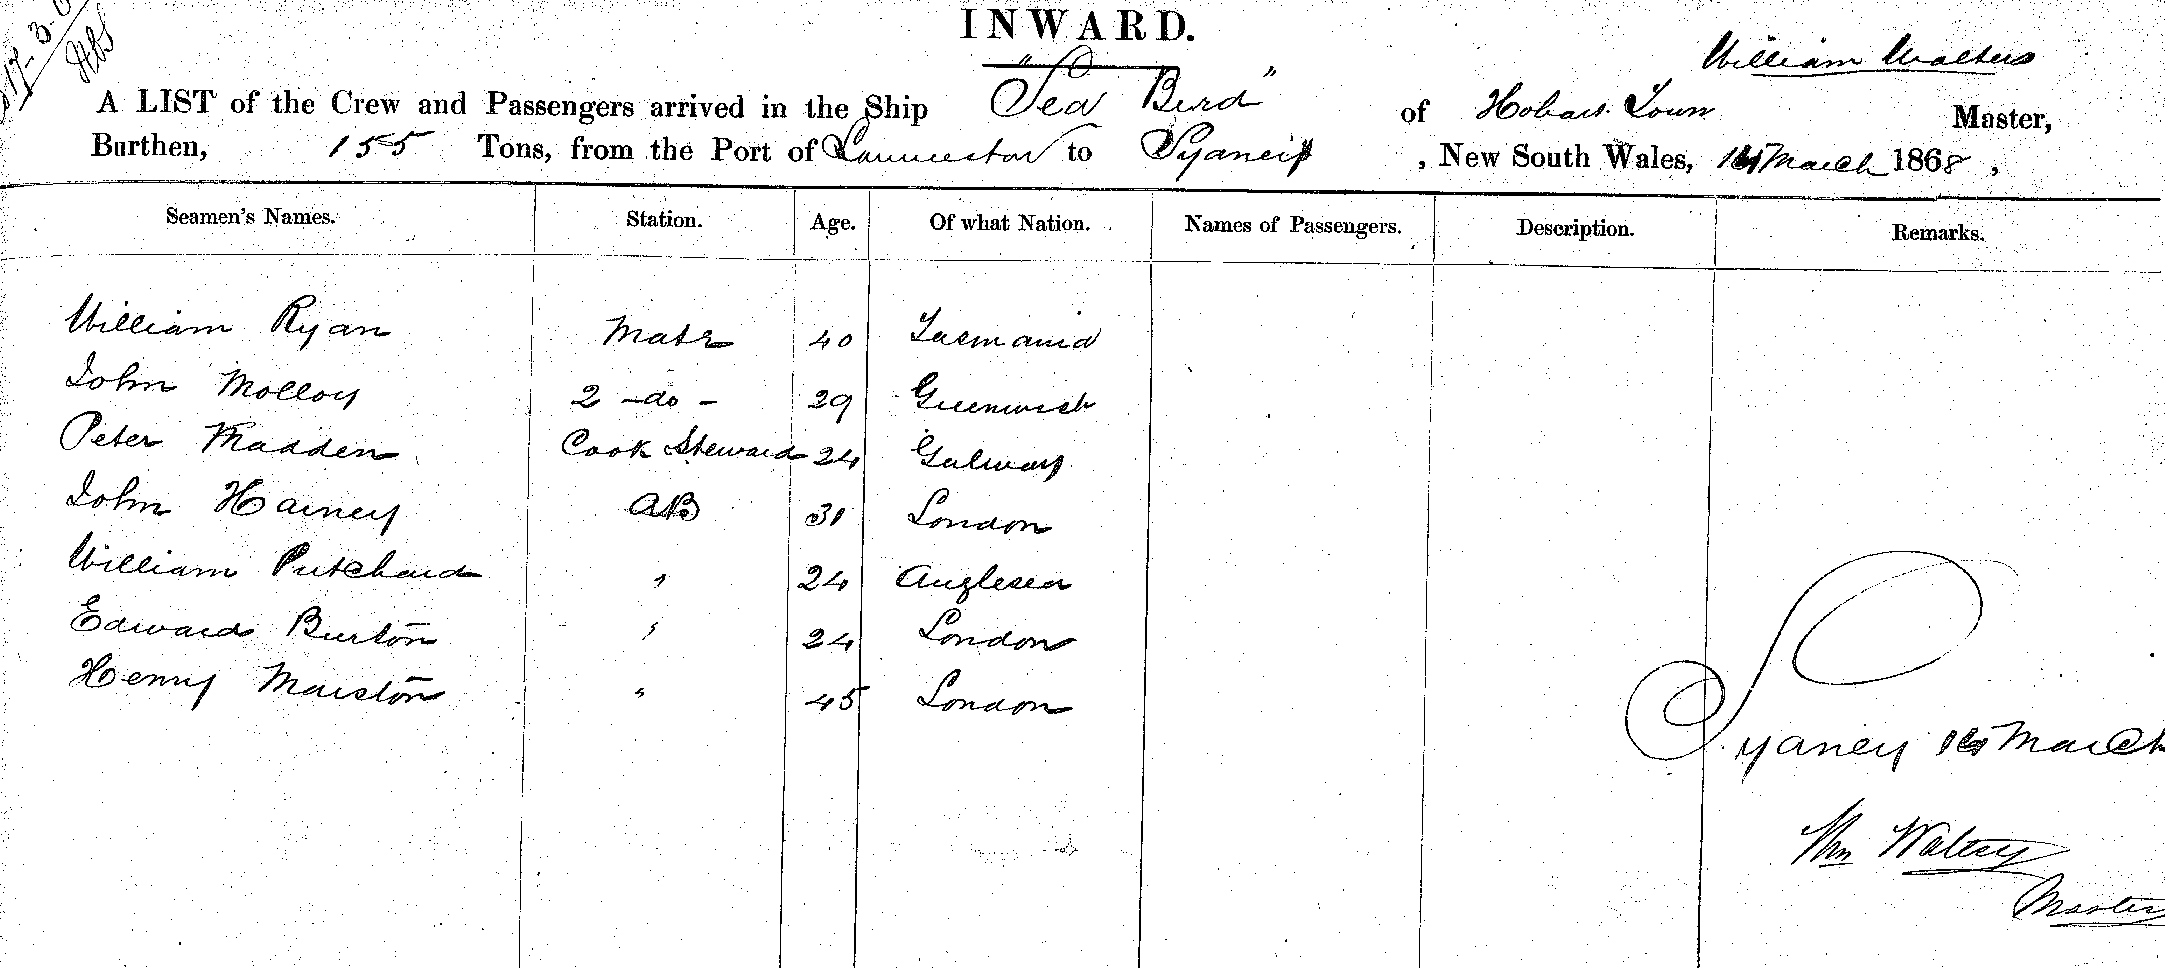 INWARD.
William Walters
A LIST of the Crew and Passengers arrived in the Ship "Sea Bird" of Hobart Town Master,
Burthen, 155 Tons, from the Port of Launceston to Sydney, New South Wales, March 1868,
Seamen's Names. Station. Age. Of what Nation. Names of Passengers. Description. Remarks.
William Ryan Mate 40 Tasmania
John Molloy 2 -do- 29 Greenwich
Peter Madden Cook Steward 24 Galway
John Hainey AB 31 London
William Pritchard " 24 Anglesea
Edward Burton " 24 London
Henry Marston " 45 London
Sydney March
Wm Walters
Master